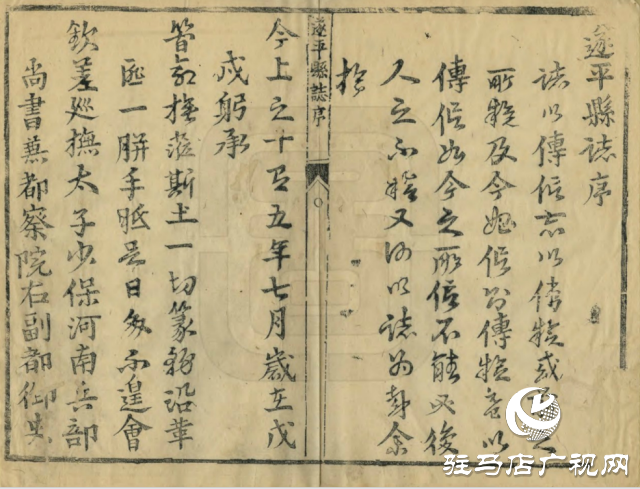 遂平縣誌序
誌以傳信亦以備驗或之
所驗及今始信傳驗以
傳信如今之所信不能必後
人之不又何以誌為余
於
遂平縣誌序
今上之十有五年七月歲在戊
戌躬承
撫蒞斯土一切篆務沿革
匪一胼手胝足日多不遑會
欽差巡撫太子少保河南兵部
尚書兼都察院右副都御史
驻马店广视网